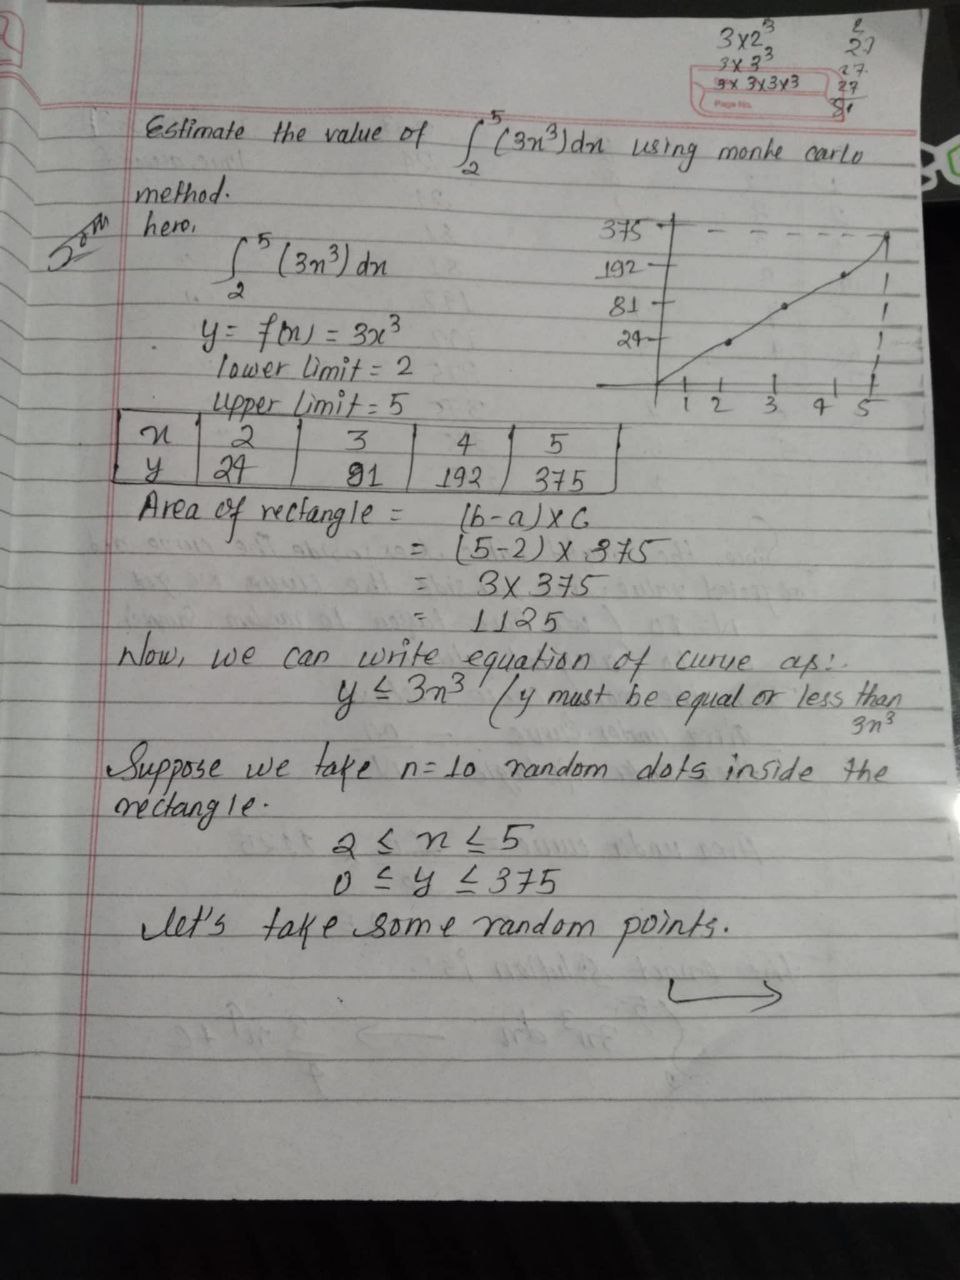 3×2³
3×3³
3×3×3×3
2
27
27
27
81
Page No.
Estimate the value of ∫₂⁵ (3x³)dx using monte carlo
method.
here,
∫₂⁵ (3x³) dx
y = f(x) = 3x³
lower limit = 2
upper limit = 5
375
192
81
24
1 2 3 4 5
x 2 3 4 5
y 24 81 192 375
Area of rectangle = (b-a) × C
= (5-2) × 375
= 3 × 375
= 1125
Now, we can write equation of curve as:.
y ≤ 3x³ (y must be equal or less than
3x³
Suppose we take n=10 random dots inside the
rectangle.
2 ≤ x ≤ 5
0 ≤ y ≤ 375
let's take some random points.